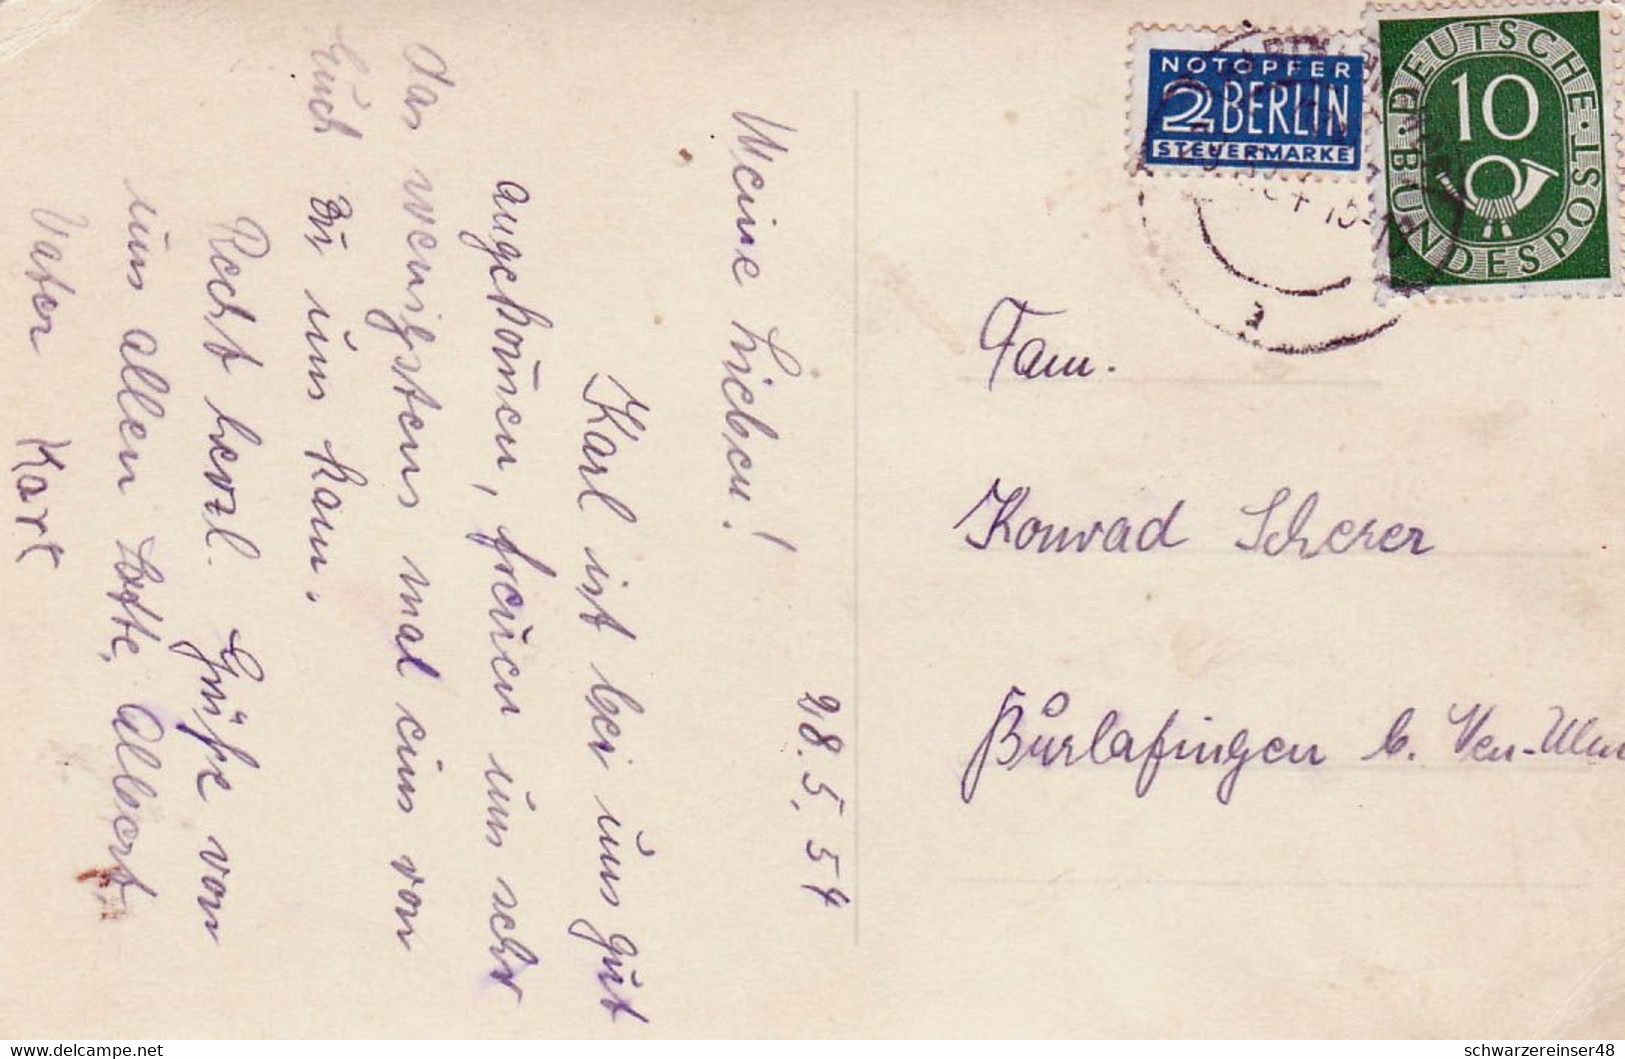 28.5.54
Meine Lieben!
Karl ist bei uns gut
angekom̄en, freuen uns sehr
das wenigstens mal eins von
Euch zu uns kam.
Recht herzl. Grüße von
uns allen Lotte, Albert
Vater Karl
NOTOPFER
2 BERLIN
STEUERMARKE
DEUTSCHE BUNDESPOST
10
Fam.
Konrad Scherer
Burlafingen b. Neu-Ulm
www.delcampe.net
schwarzereinser48